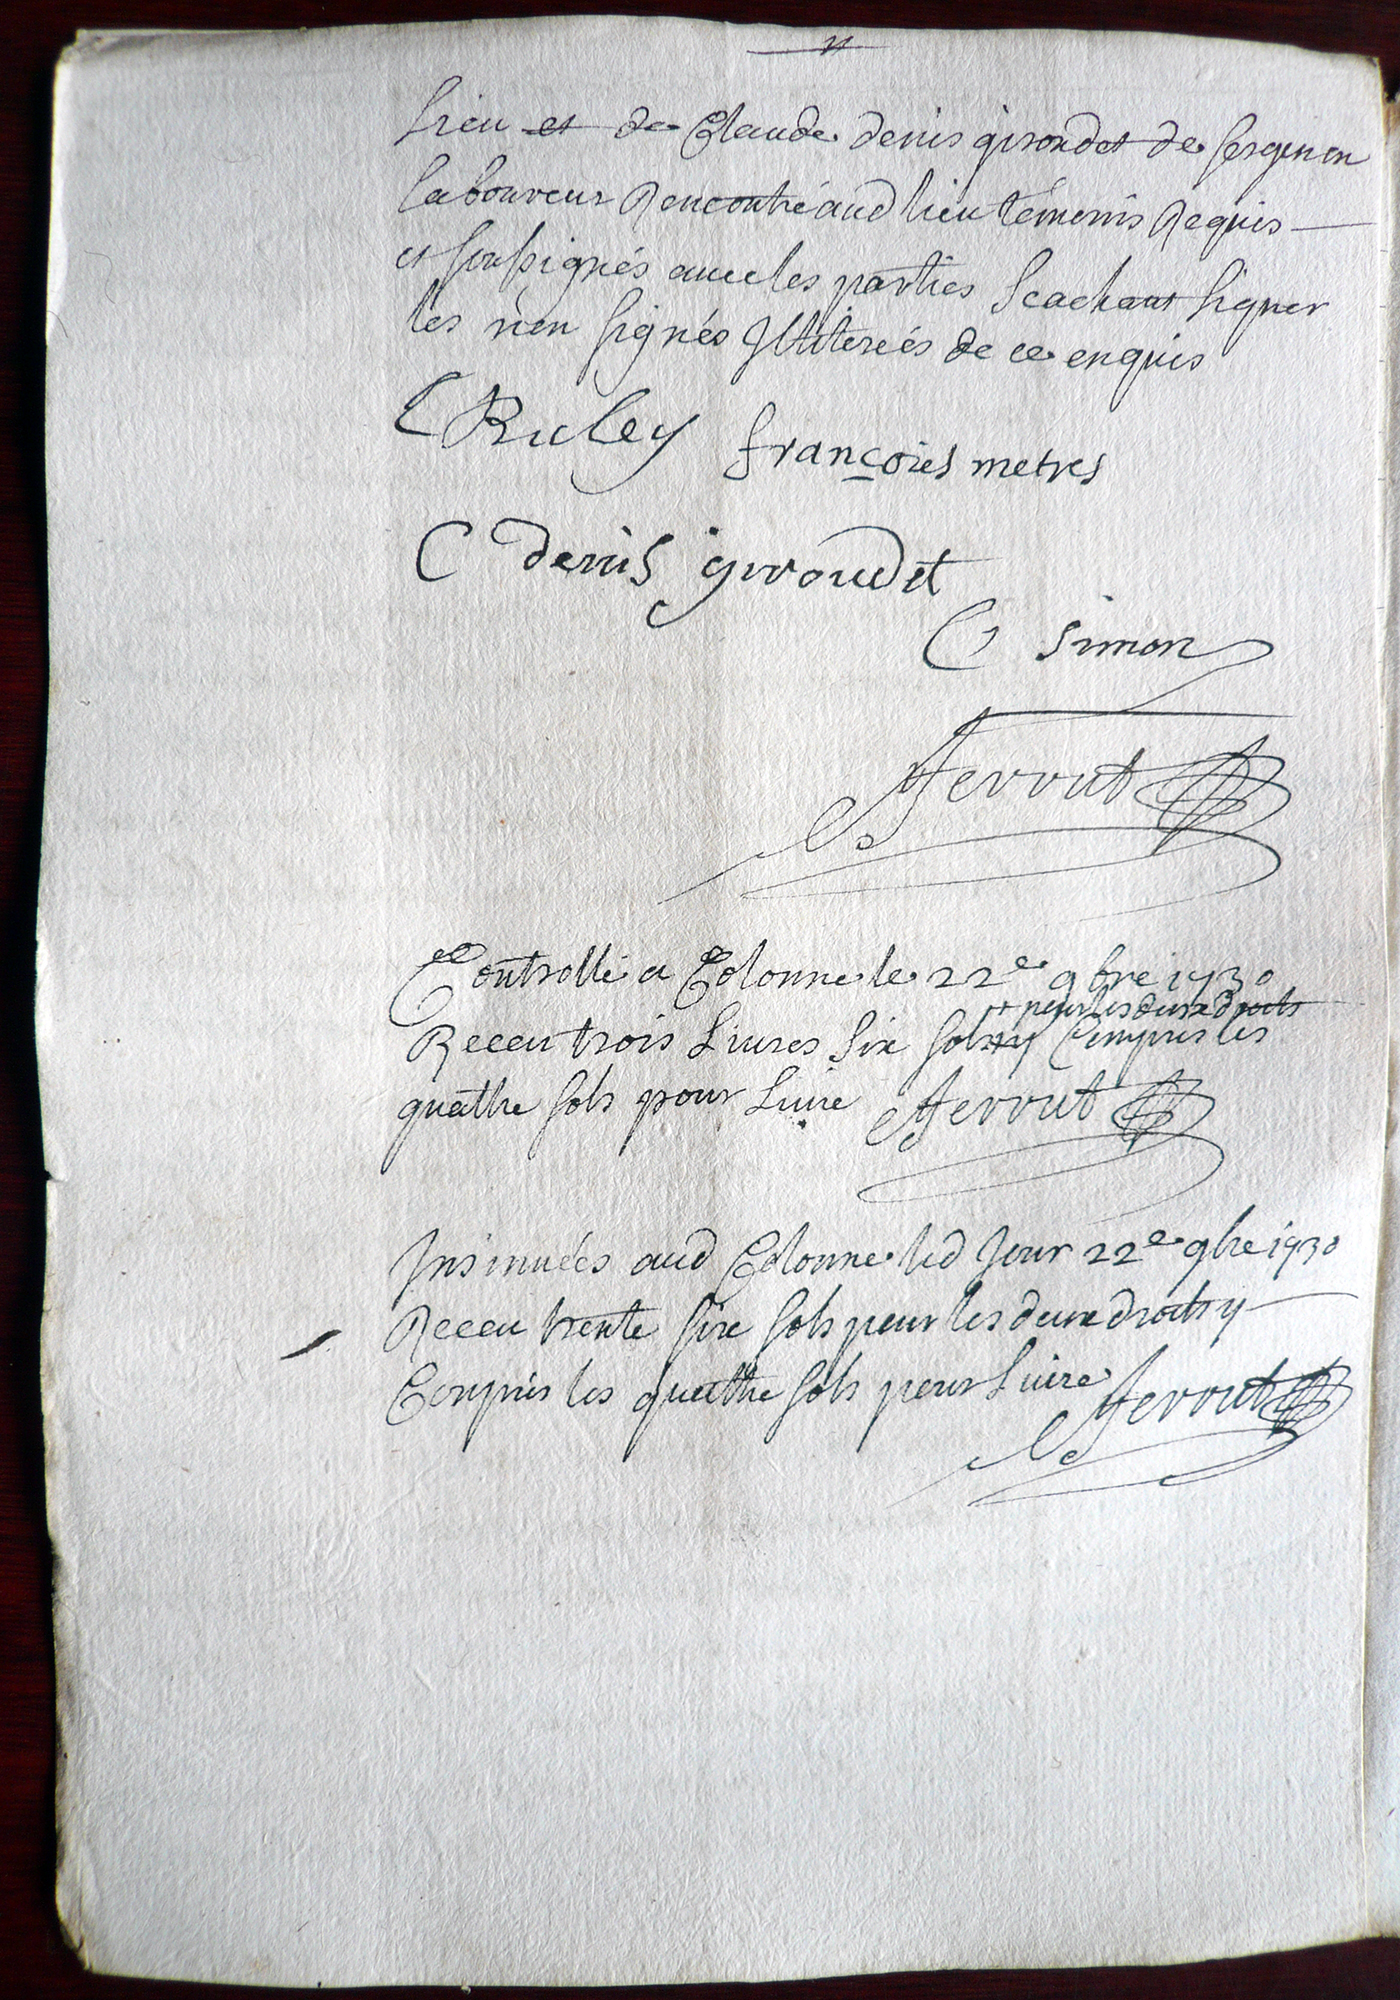 lieu et de Claude denis girondet de sergenon
laboureur Rencontré aud lieu témoins Requis
et soussignés avec les parties scachant signer
les n'en signés Illiterés de ce enquis
C Buley françoies metres
C denis giroudet
C simon
ferrut
Controllé a Colonne le 22e 9bre 1730
++ pour les deux droits
Receu trois Livres six sols ++ y Compris les
quatthe sols pour Livre ferrut
Insinuées aud Colonne led Jour 22e 9bre 1730
Receu trente six sols pour les deux droits y
Compris les quatthe sols pour Livre ferrut